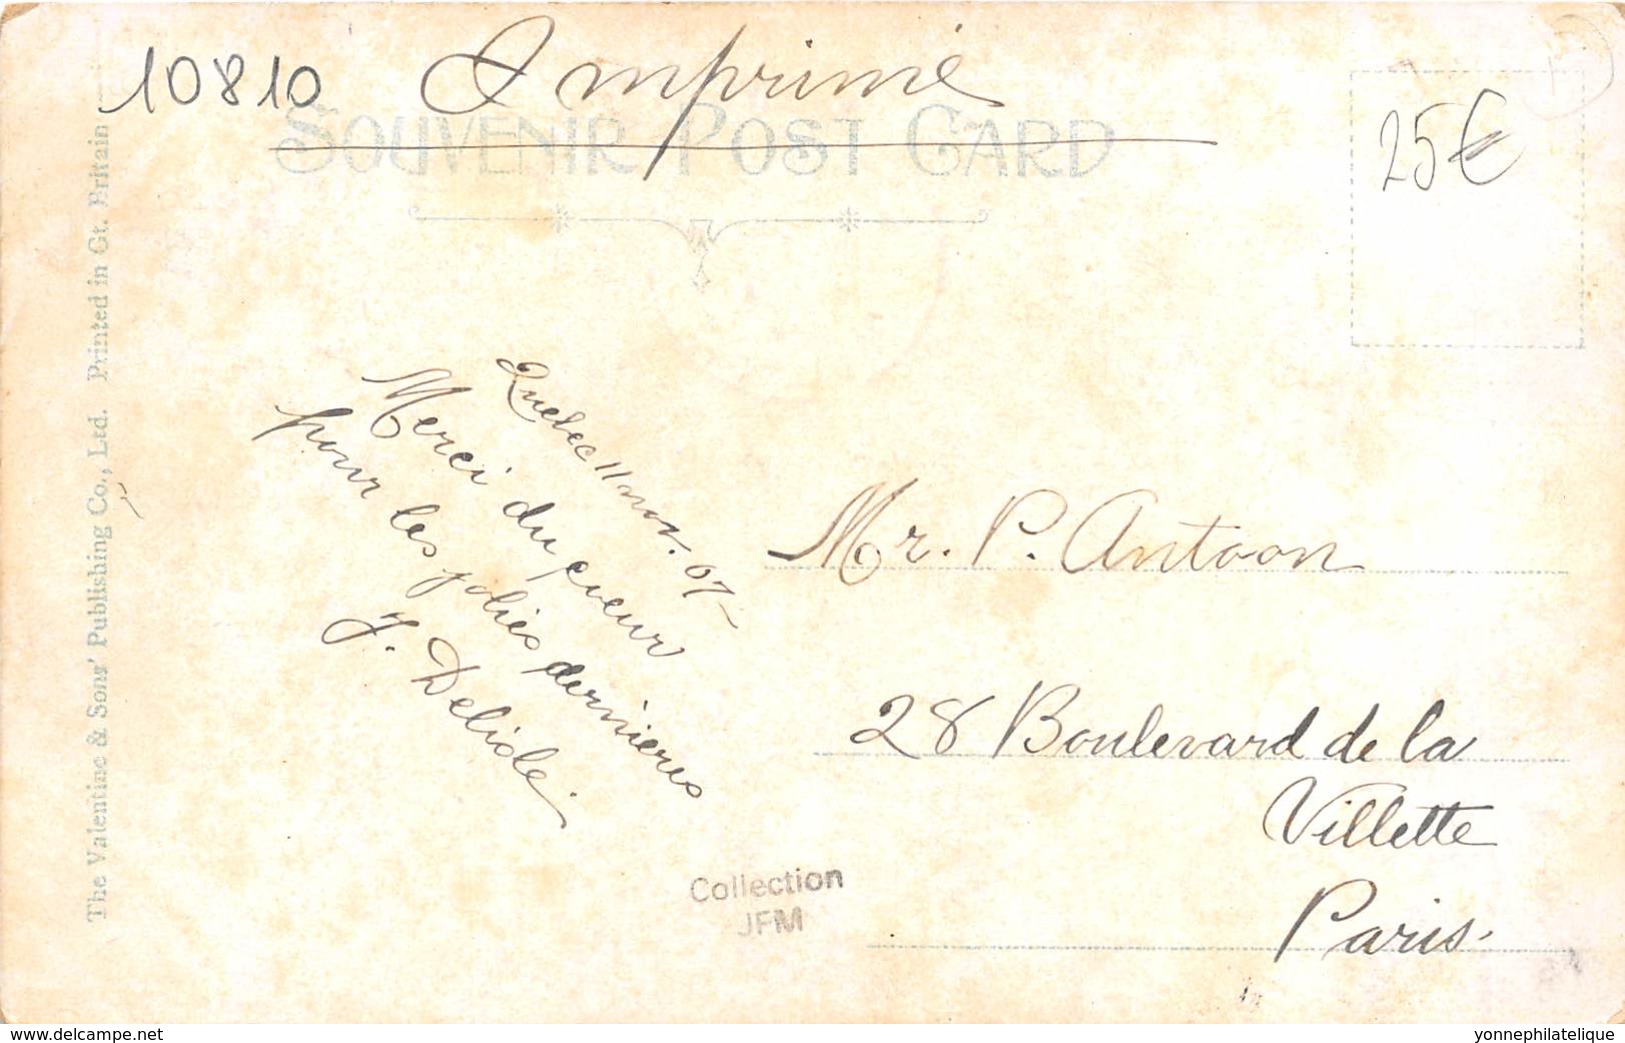 10810
Imprimé
SOUVENIR POST CARD
25€
The Valentine & Sons' Publishing Co., Ltd. Printed in Gt. Britain
Quebec 11 nov. 07-
Merci du coeur
pour les jolies dernieres
J. Delisle.
Mr. P. Antoon
28 Boulevard de la
Villette
Paris.
Collection
JFM
www.delcampe.net
yonnephilatelique